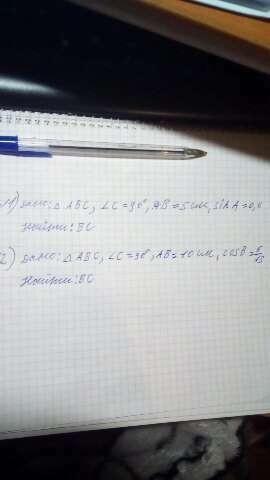 1) Дано: △ ABC, ∠C = 90°, AB = 5 см, sin A = 0,
Найти: BC
2) Дано: △ ABC, ∠C = 90°, AB = 10 см, cos B =
Найти: BC